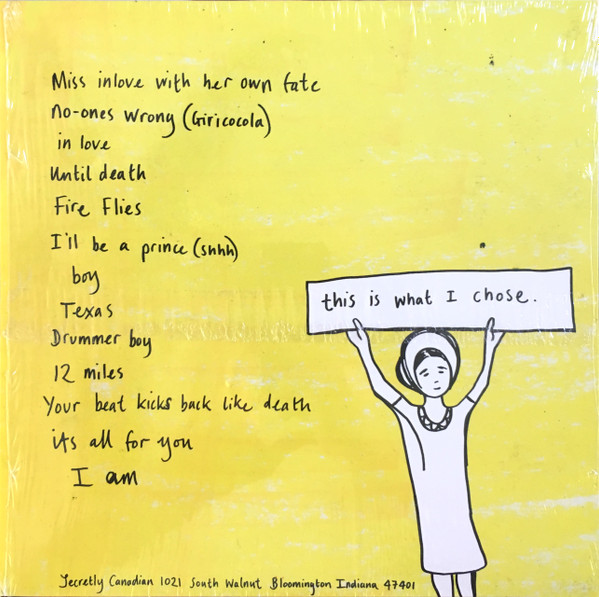 Miss inlove with her own fate
No-ones wrong (Giricocola)
in love
Until death
Fire Flies
I'll be a prince (shhh)
boy
Texas
Drummer boy
12 miles
Your beat kicks back like death
its all for you
I am
this is what I chose.
Secretly Canadian 1021 South Walnut Bloomington Indiana 47401